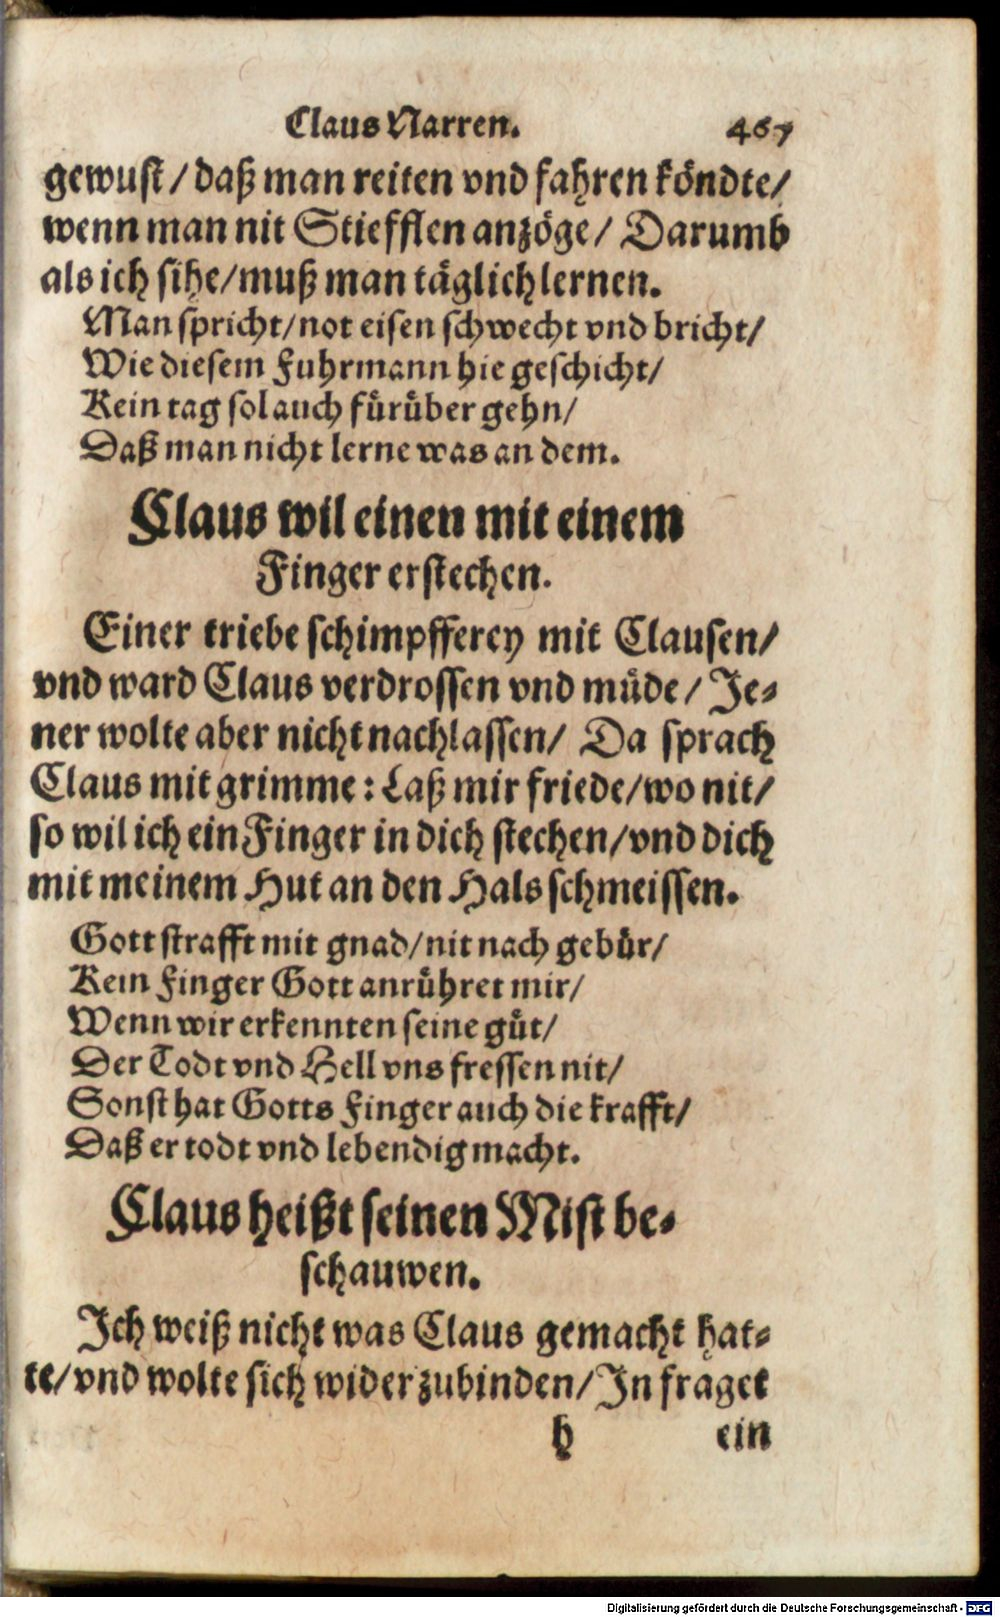 Claus Narren. 467
gewust / daß man reiten vnd fahren köndte/
wenn man nit Stiefflen anzöge / Darumb
als ich sihe/muß man täglich lernen.
Man spricht/not eisen schwecht vnd bricht/
Wie diesem Fuhrmann hie geschicht/
Kein tag sol auch fürüber gehn/
Daß man nicht lerne was an dem.
Claus wil einen mit einem
Finger erstechen.
Einer triebe schimpfferey mit Clausen/
vnd ward Claus verdrossen vnd müde / Je-
ner wolte aber nicht nachlassen/ Da sprach
Claus mit grimme: Laß mir friede/wo nit/
so wil ich ein Finger in dich stechen/vnd dich
mit meinem Hut an den Hals schmeissen.
Gott strafft mit gnad/nit nach gebür/
Kein Finger Gott anrühret mir/
Wenn wir erkennten seine güt/
Der Todt vnd Hell vns fressen nit/
Sonst hat Gotts Finger auch die krafft/
Daß er todt vnd lebendig macht.
Claus heißt seinen Mist be-
schauwen.
Ich weiß nicht was Claus gemacht hat-
te/vnd wolte sich wider zubinden/In fraget
h ein
Digitalisierung gefördert durch die Deutsche Forschungsgemeinschaft - DFG